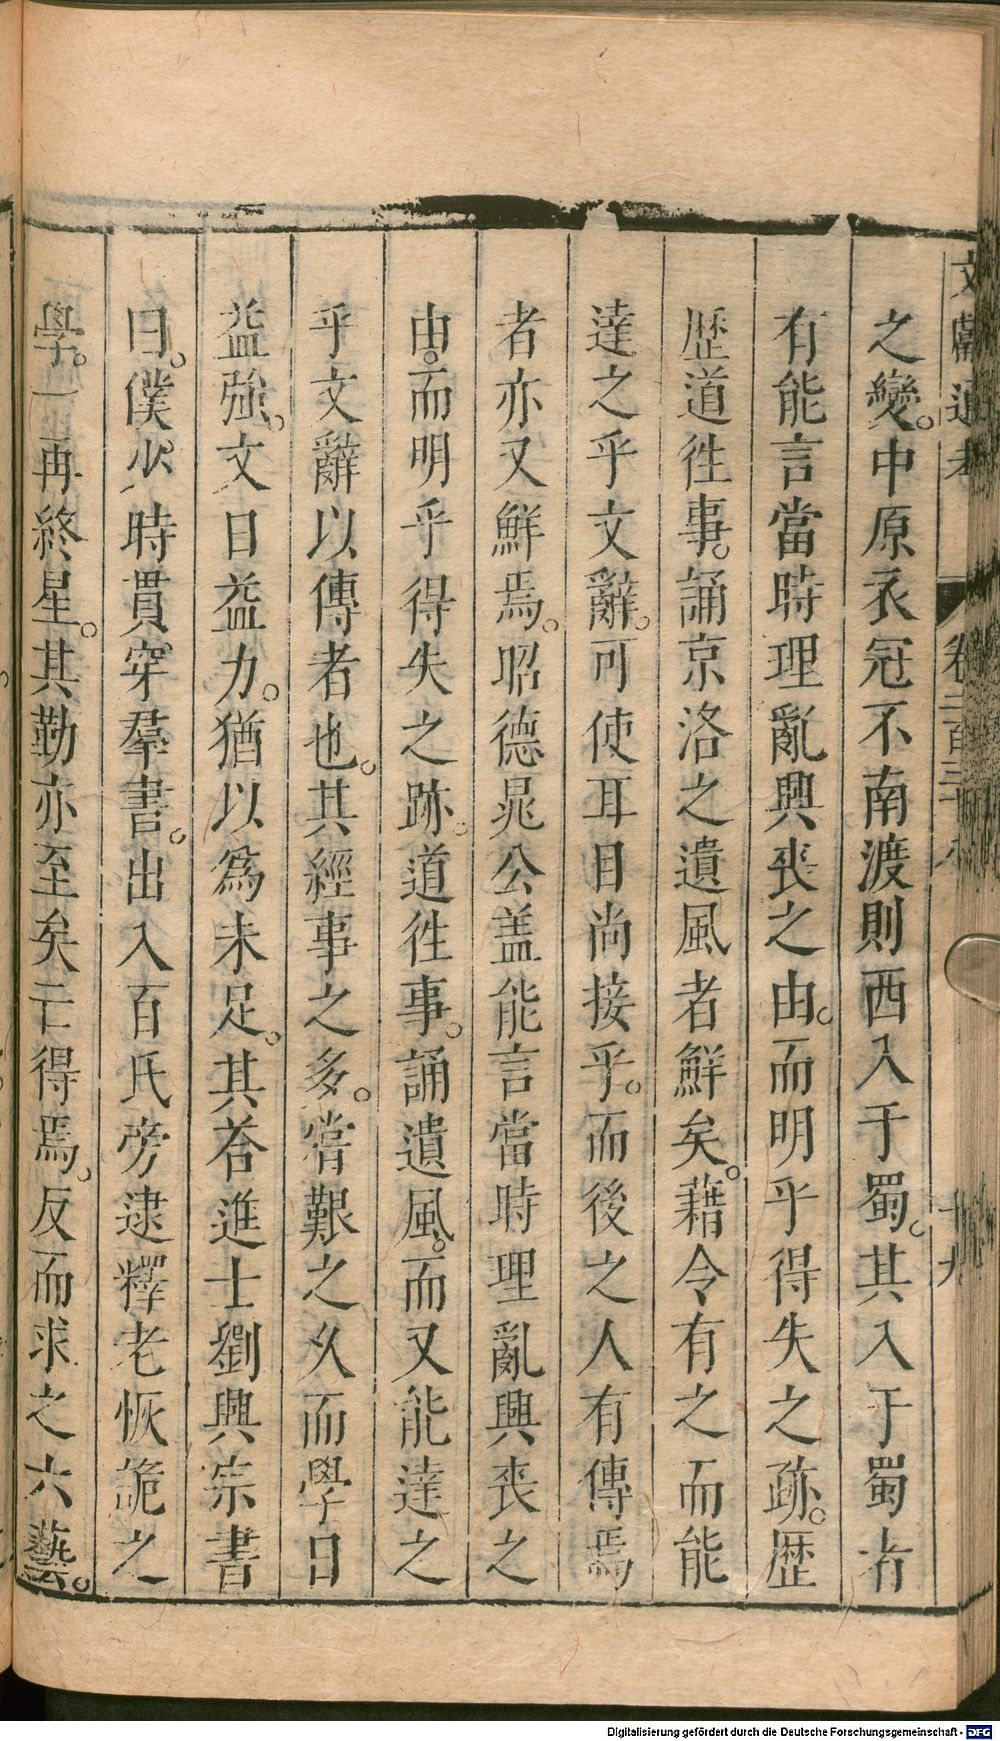 文獻通考 卷二百三十八 十九
之變。中原衣冠不南渡則西入于蜀。其入于蜀者
有能言當時理亂興喪之由。而明乎得失之跡。歷
歷道徃事。誦京洛之遺風者鮮矣。藉令有之而能
達之乎文辭。可使耳目尚接乎。而後之人有傳焉
者亦又鮮焉。昭德晁公盖能言當時理亂興喪之
由。而明乎得失之跡。道徃事。誦遺風。而又能達之
乎文辭以傳者也。其經事之多。嘗艱之久而學日
益強。文日益力。猶以爲未足。其荅進士劉興宗書
曰。僕少時貫穿羣書。出入百氏旁逮釋老恢詭之
學。一再終星。其勤亦至矣亡得焉。反而求之六藝。
Digitalisierung gefördert durch die Deutsche Forschungsgemeinschaft - DFG